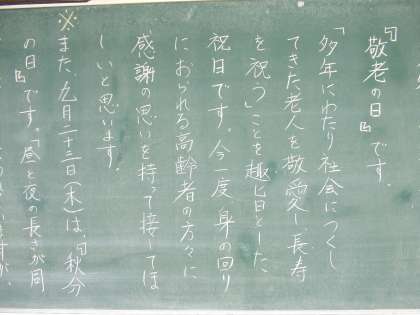 『敬老の日』です。
「多年にわたり社会につくし
てきた老人を敬愛し長寿
を祝う」ことを趣旨とした
祝日です。今一度身の回り
におられる高齢者の方々に
感謝の思いを持って接してほ
しいと思います。
※また、九月二十三日(木)は、『秋分
の日』です。「昼と夜の長さが同